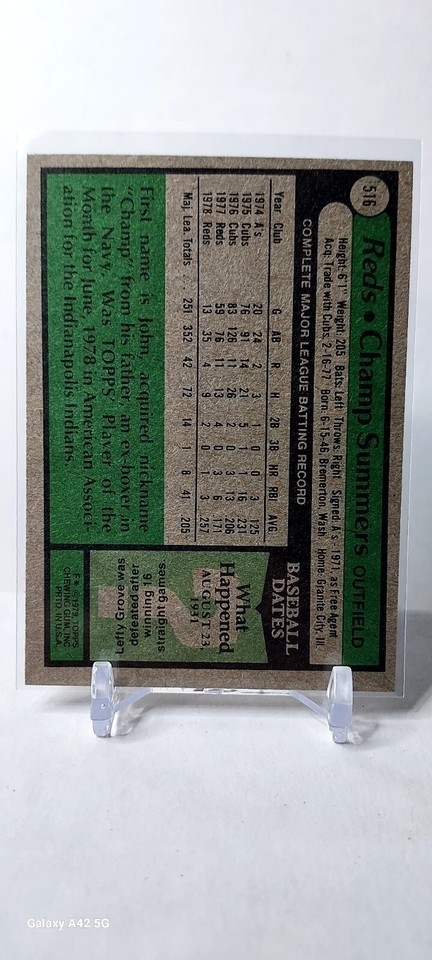 516
Reds • Champ Summers OUTFIELD
Height: 6'1" Weight: 205 Bats: Left Throws: Right Signed: A's - 1971, as Free Agent
Acq: Trade with Cubs, 2-16-77 Born: 6-15-46, Bremerton, Wash. Home: Granite City, Ill.
COMPLETE MAJOR LEAGUE BATTING RECORD
Year Club G AB R H 2B 3B HR RBI AVG
1974 A's 20 24 2 3 1 0 0 3 .125
1975 Cubs 76 91 14 21 5 1 1 16 .231
1976 Cubs 83 126 11 26 2 0 3 13 .206
1977 Reds 59 76 11 13 4 0 3 6 .171
1978 Reds 13 35 4 9 2 0 1 3 .257
Maj. Lea. Totals 251 352 42 72 14 1 8 41 .205
First name is John, acquired nickname
"Champ" from his father, an ex-boxer in
the Navy. Was TOPPS' Player of the
Month for June, 1978 in American Associ-
ation for the Indianapolis Indians.
BASEBALL
DATES
What
Happened
AUGUST 23,
1931
Lefty Grove was
defeated after
winning 16
straight games.
F★ © 1979, TOPPS
CHEWING GUM, INC.
PRTD. IN U.S.A.
Galaxy A42 5G